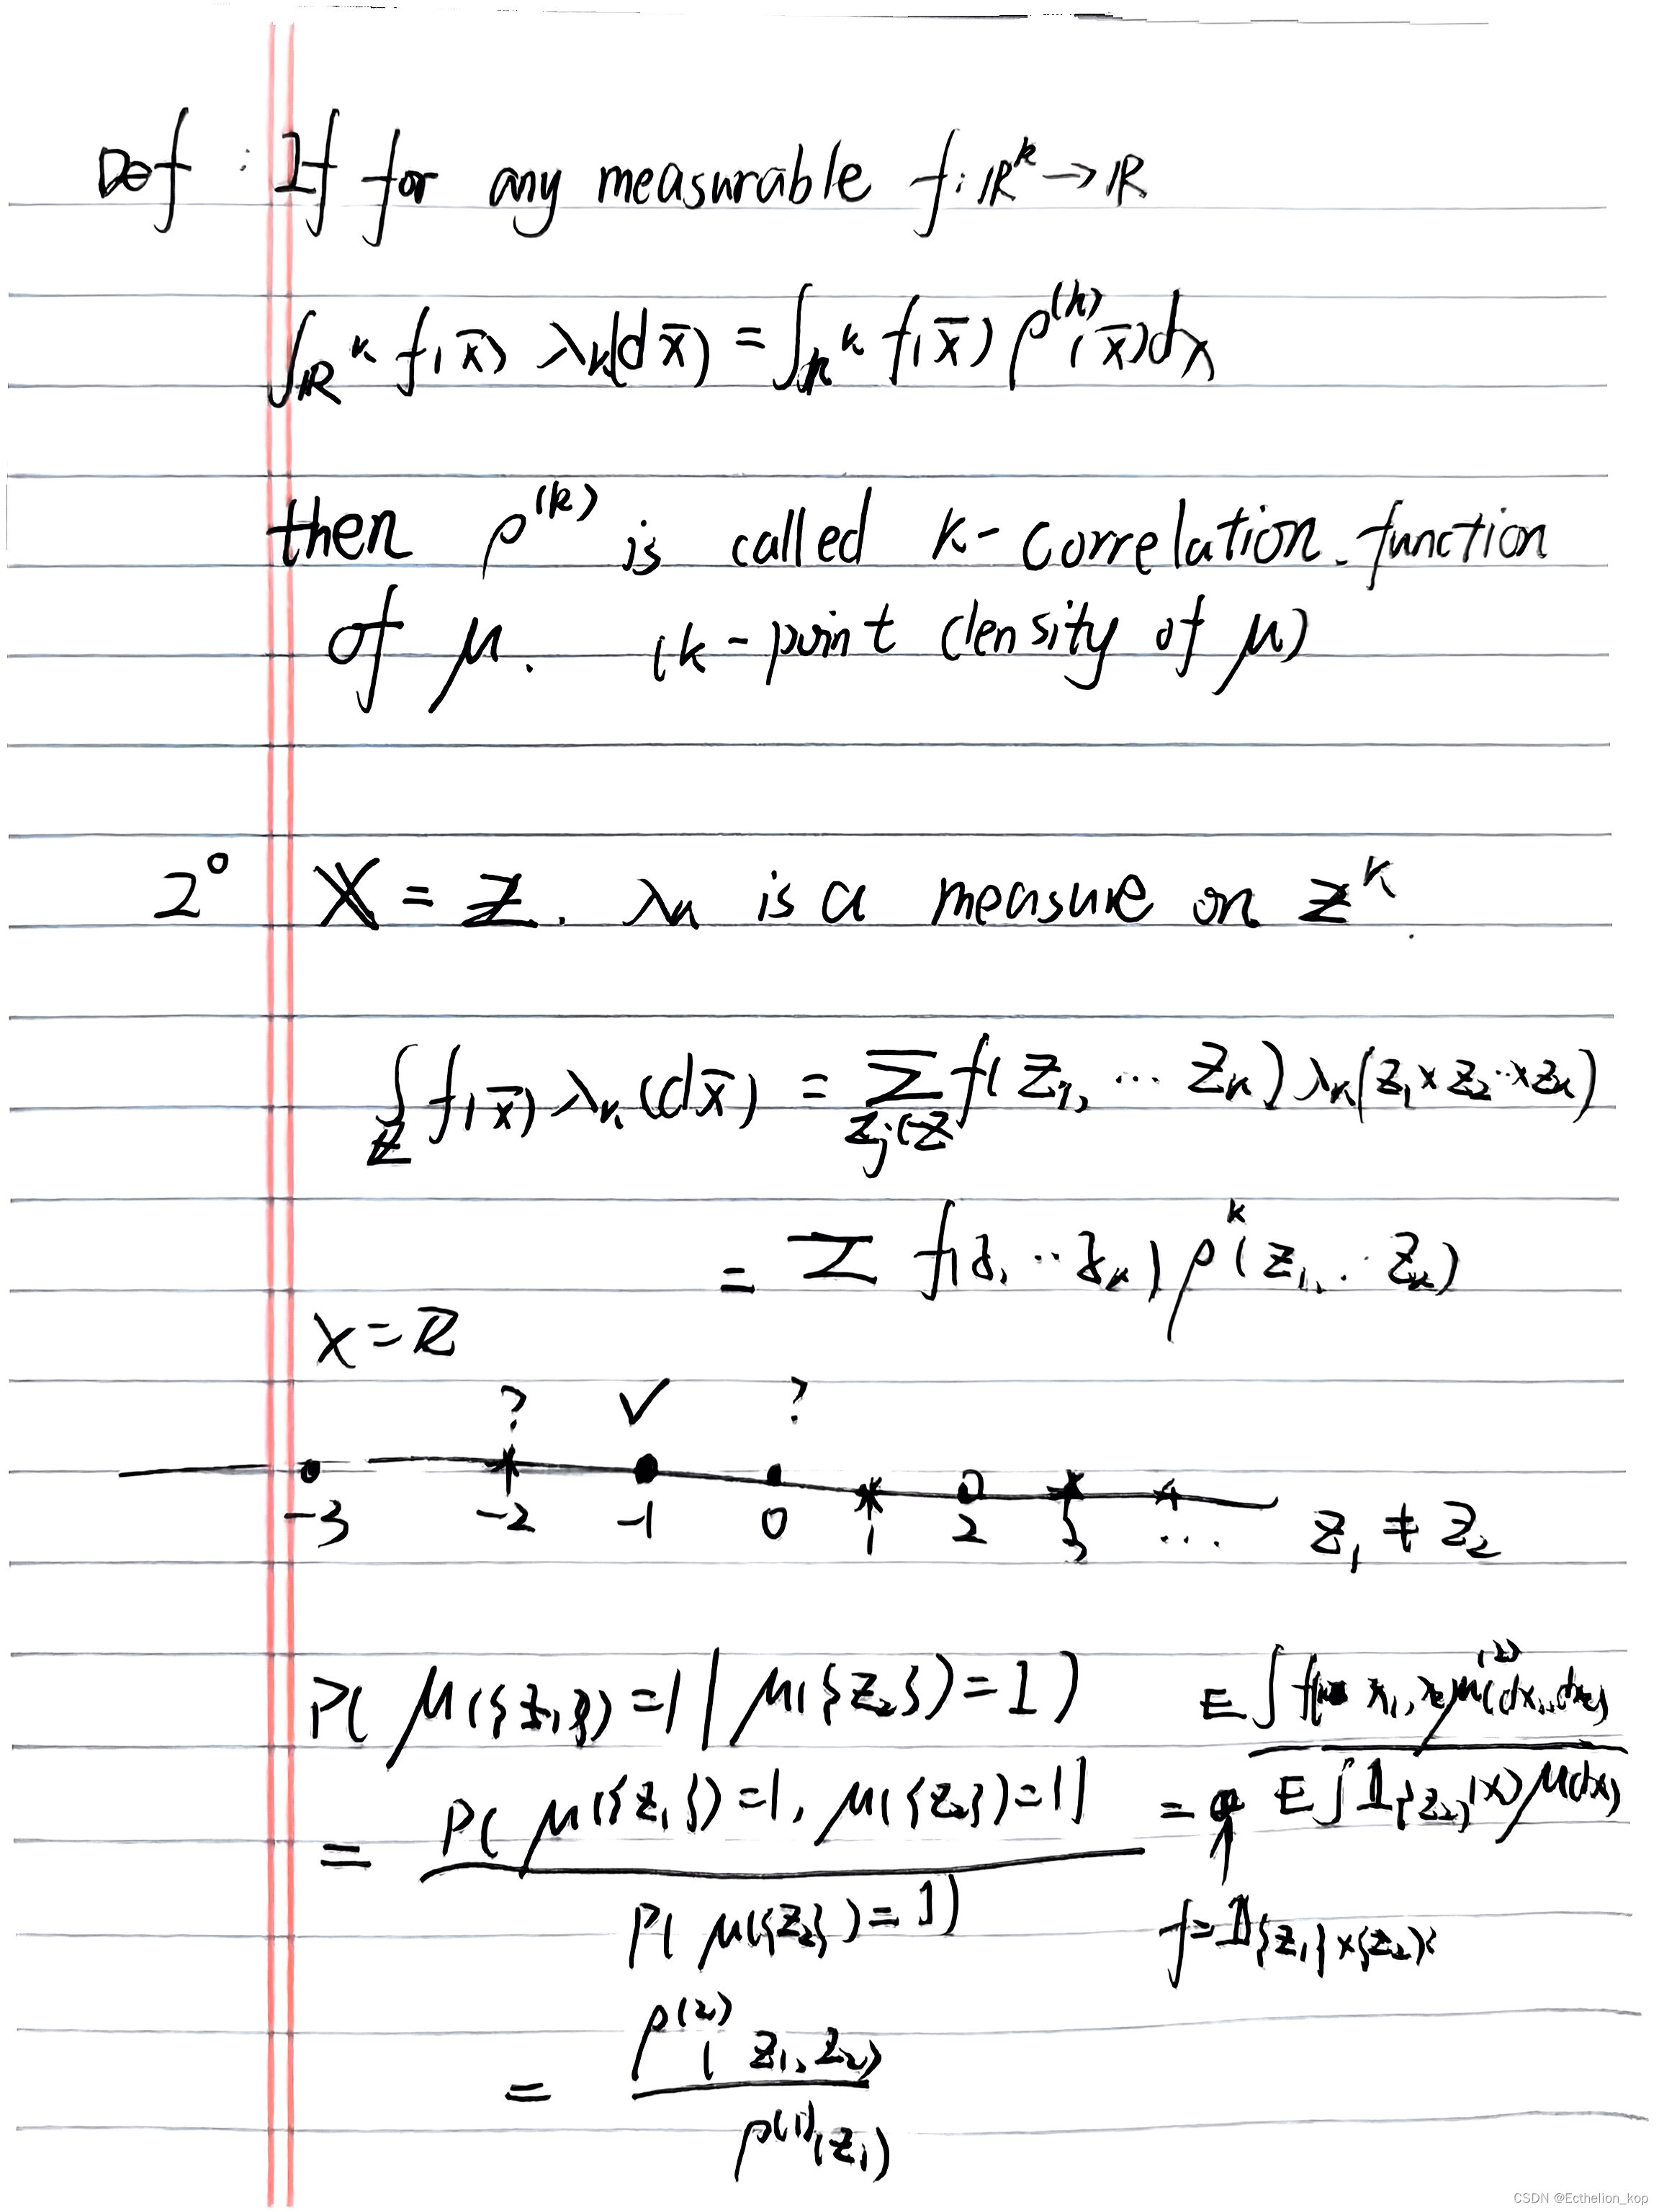 Def : If for any measurable f: ℝ^k → ℝ
∫_{ℝ^k} f(x̄) λ_k(dx̄) = ∫_{ℝ^k} f(x̄) ρ^{(k)}(x̄) dx
then ρ^{(k)} is called k-correlation function
of μ. (k-point density of μ)
2° X = Z. λ_k is a measure on Z^k.
∫_Z f(x̄) λ_k(dx̄) = Σ_{z_j∈Z} f(z_1, ... z_k) λ_k(z_1 × z_2 ... × z_k)
= Σ f(z_1 ... z_k) ρ^k(z_1, ... z_k)
X = Z
? ✓ ?
-3 -2 -1 0 1 2 3 ... z_1 ≠ z_2
P( μ({z_1}) = 1 | μ({z_2}) = 1 )
= P( μ({z_1}) = 1, μ({z_2}) = 1 ) / P( μ({z_2}) = 1 ) = E ∫ f(x_1, x_2) μ^{(2)}(dx_1, dx_2) / E ∫ 𝟙_{z_2}(x) μ(dx)
↑
f = 𝟙_{{z_1} × {z_2}}
= ρ^{(2)}(z_1, z_2) / ρ^{(1)}(z_1)
CSDN @Ecthelion_kop